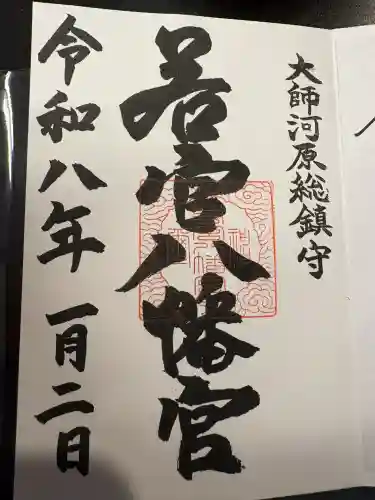 大師河原総鎮守
若宮八幡宮
令和八年一月二日